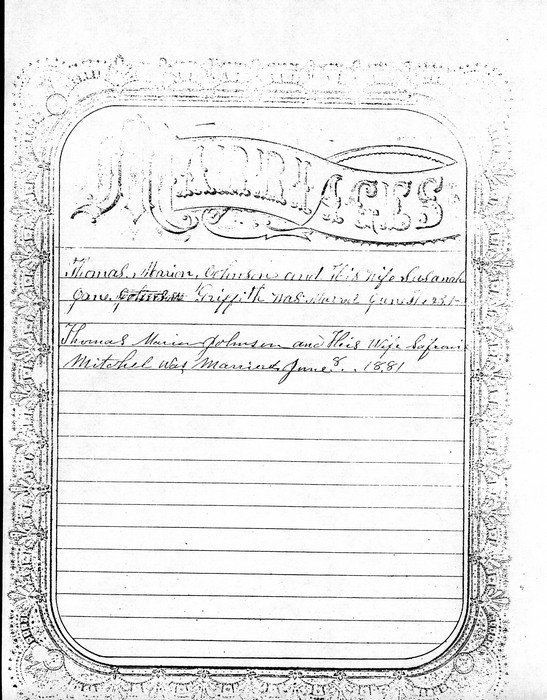 MARRIAGES
Thomas, Marion, Johnson and His Wife Susanah
Jane, Griffith was June
Thomas Marion Johnson and His Wife
Mitchel was Married June 8. 1881